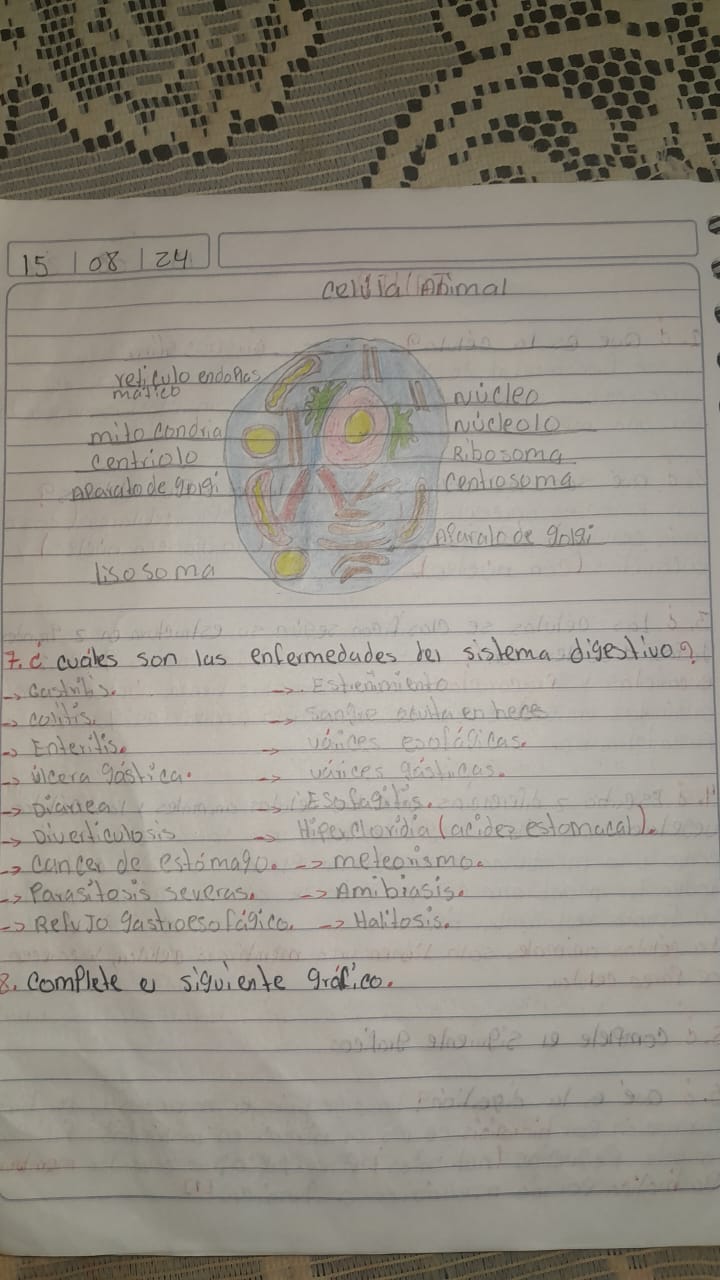 15 | 08 | 24
Celula Animal
reticulo endoplas
mático
mitocondria
Centriolo
Aparato de golgi
lisosoma
Núcleo
Núcleolo
Ribosoma
Centrosoma
Aparato de golgi
7. ¿ cuáles son las enfermedades del sistema digestivo?
→ Gastritis.
→ colitis.
→ Enteritis.
→ úlcera gástica.
→ Diarrea
→ Diverticulosis
→ Cancer de estómago.
→ Parasitosis severas.
→ Reflujo gastroesofágico.
→ Estreñimiento
→ Sangre oculta en heces
→ várices esofágicas.
→ várices gásticas.
→ Esofagitis.
→ Hipercloridia (acidez estomacal).
→ meteorismo.
→ Amibiasis.
→ Halitosis.
8. Complete e siguiente gráfico.